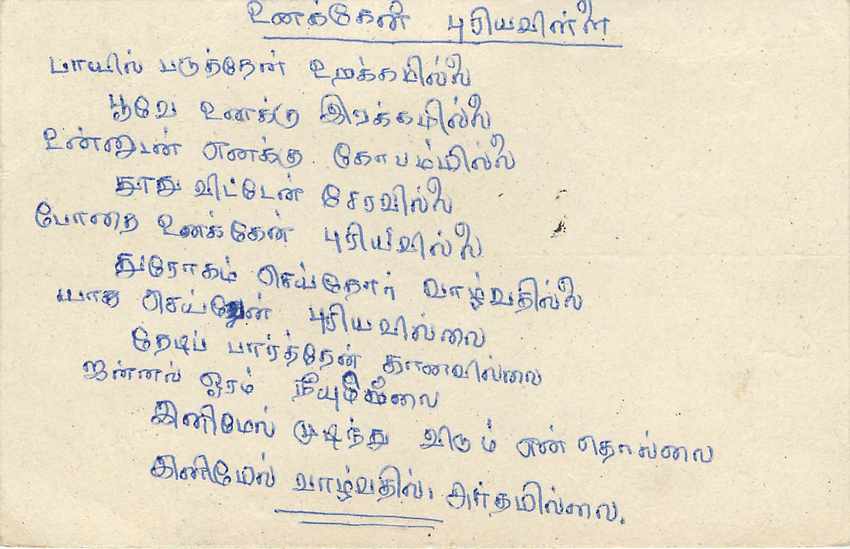 உனக்கேன் புரியவில்லை
பாயில் படுத்தேன் உறக்கமில்லை
பூவே உனக்கு இரக்கமில்லை
உன்னுடன் எனக்கு கோபம்மில்லை
தூது விட்டேன் சேரவில்லை
போதை உனக்கேன் புரியவில்லை
துரோகம் செய்தோர் வாழ்வதில்லை
செய்தேன் புரியவில்லை
தேடிப் பார்த்தேன் காணவில்லை
ஜன்னல் ஓரம் நீயுமில்லை
இனிமேல் முடிந்து விடும் என் தொல்லை
இனிமேல் வாழ்வதில் அர்தமில்லை.